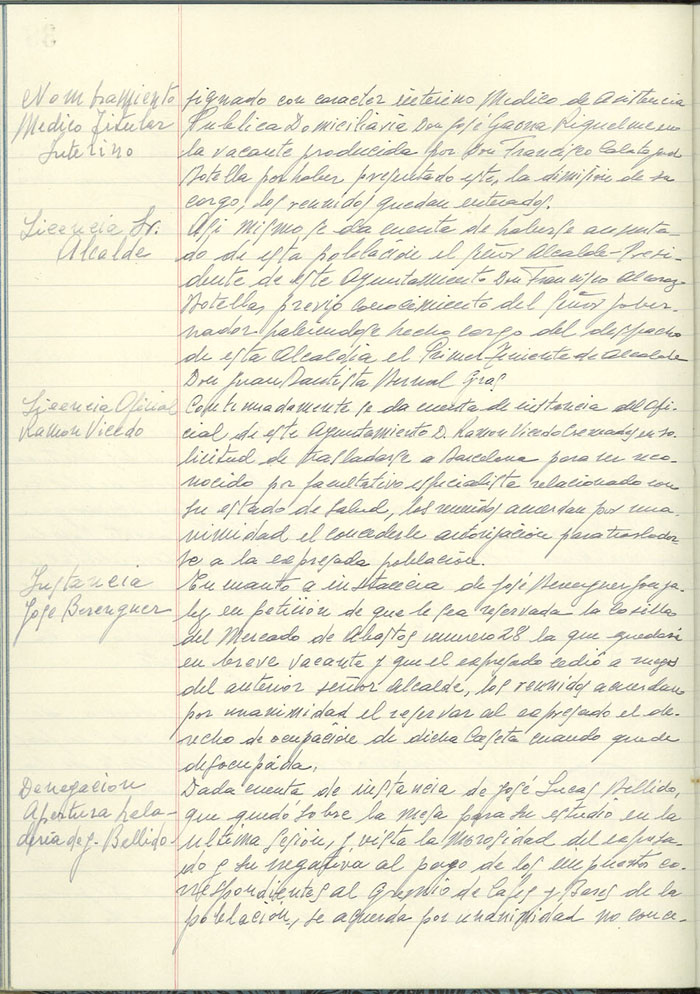 Nombramiento
Medico Titular
Interino
signado con caracter interino Medico de Asistencia
Publica Domiciliaria Don José Gaona Riquelme en
la vacante producida por Don Francisco Calatayud
Botella por haber presentado este, la dimisión de su
cargo, los reunidos quedan enterados.
Licencia Sr.
Alcalde
Asi mismo se da cuenta de haberse ausenta-
do de esta población el señor Alcalde-Presi-
dente de este Ayuntamiento Don Francisco Alcaraz
Botella, previo conocimiento del Señor Gober-
nador habiendose hecho cargo del despacho
de esta Alcaldia el Primer Teniente de Alcalde
Don Juan Bautista Bernal Gras
Licencia Oficial
Ramon Vicedo
Continuadamente se da cuenta de instancia del Ofi-
cial de este Ayuntamiento D. Ramon Vicedo en so-
licitud de trasladarse a Barcelona para ser reco-
nocido por facultativo especialista relacionado con
su estado de salud, los reunidos acuerdan por una-
nimidad el concederle autorización para traslada-
se a la expresada población.
Instancia
Jose Berenguer
En cuanto a instancia de José Berenguer Gonza-
lez en petición de que le sea reservada la Casilla
del Mercado de Abastos numero 28 la que quedará
en breve vacante y que el expresado cedió a ruegos
del anterior señor Alcalde, los reunidos acuerdan
por unanimidad el reservar al expresado el de-
recho de ocupación de dicha Caseta cuando quede
desocupada.
Denegacion
Apertura hela-
deria de J. Bellido
Dada cuenta de instancia de José Lucas Bellido,
que quedó sobre la mesa para su estudio en la
ultima Sesión, y vista la Morosidad del expresa-
do y su negativa al pago de los impuestos co-
rrespondientes al Gremio de Cafes y Bares de la
población, se acuerda por unanimidad no conce-